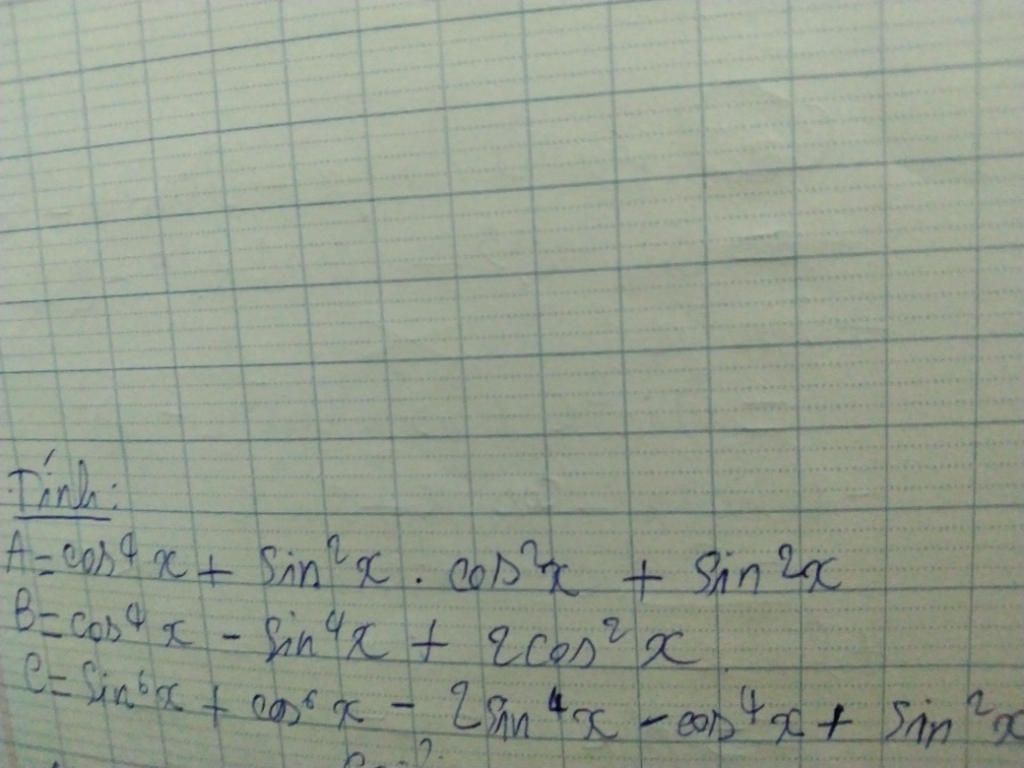 Tính:
A = cos⁴x + sin²x . cos²x + sin²x
B = cos⁴x - sin⁴x + 2cos²x
C = sin⁶x + cos⁶x - 2sin⁴x - cos⁴x + sin²x